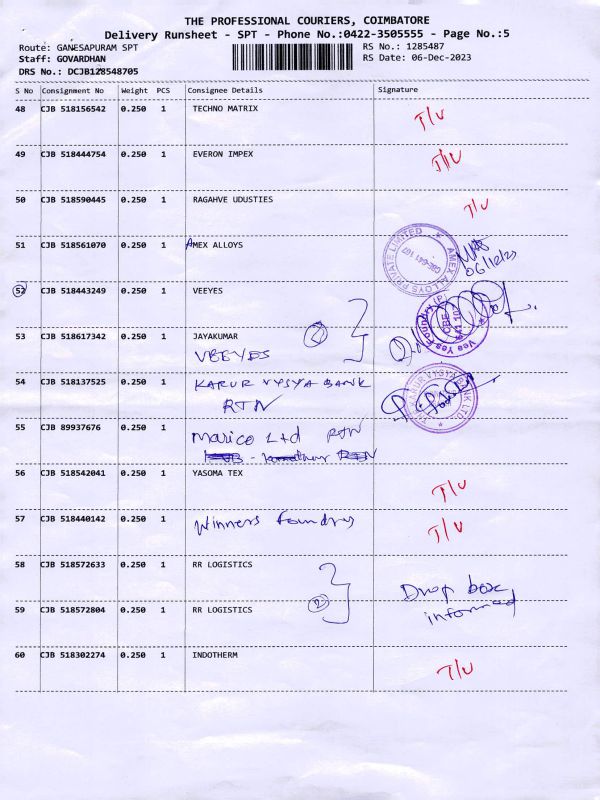 THE PROFESSIONAL COURIERS, COIMBATORE
Delivery Runsheet - SPT - Phone No.:0422-3505555 - Page No.:5
Route: GANESAPURAM SPT RS No.: 1285487
Staff: GOVARDHAN RS Date: 06-Dec-2023
DRS No.: DCJB128548705
S No Consignment No Weight PCS Consignee Details Signature
48 CJB 518156542 0.250 1 TECHNO MATRIX T/U
49 CJB 518444754 0.250 1 EVERON IMPEX T/U
50 CJB 518590445 0.250 1 RAGAHVE UDUSTIES T/U
51 CJB 518561070 0.250 1 AMEX ALLOYS
AMEX ALLOYS PRIVATE LIMITED
CBE-641 107
06/12/23
52 CJB 518443249 0.250 1 VEEYES
2
Vee Yes Foundry (P)
CBE
641 107
53 CJB 518617342 0.250 1 JAYAKUMAR
VEEYES
54 CJB 518137525 0.250 1 KARUR VYSYA BANK
RTN
KARUR VYSYA BANK LTD
55 CJB 89937676 0.250 1 Marico Ltd RTN
56 CJB 518542041 0.250 1 YASOMA TEX T/U
57 CJB 518440142 0.250 1 Winners foundry T/U
58 CJB 518572633 0.250 1 RR LOGISTICS
2 Drop box
informed
59 CJB 518572804 0.250 1 RR LOGISTICS
60 CJB 518302274 0.250 1 INDOTHERM T/U